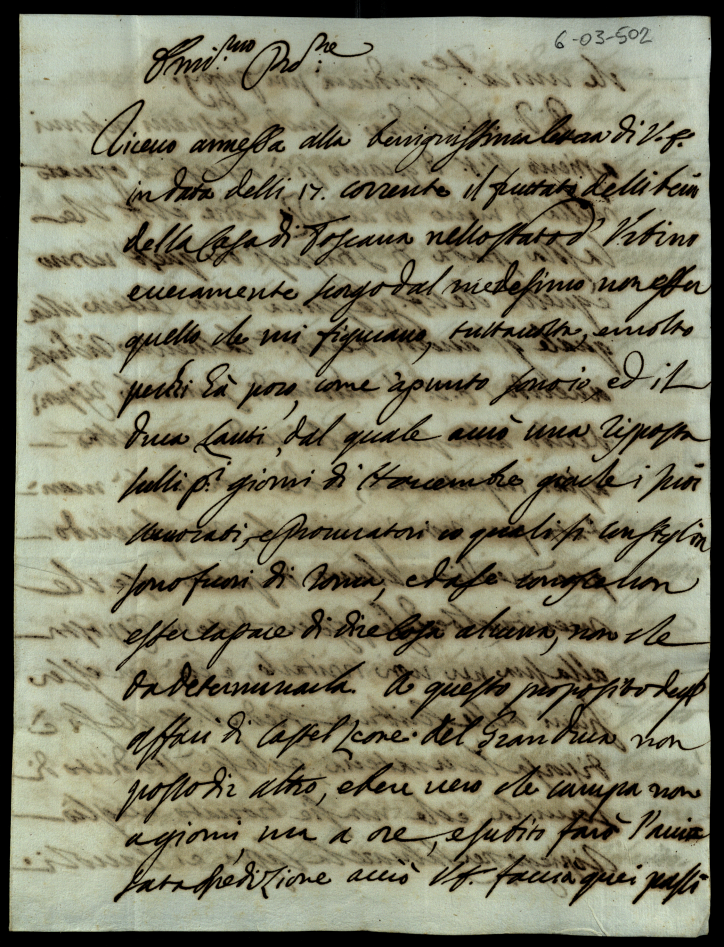 6-03-502
Smi.mo Prd.ne
Riceuo annessa alla benignissima di V.
in data delli 17. corrente il fruttato delli beni
della Casa di Toscana nello stato d'Urbino
e ueramente scorgo dal medesimo non esser
quello che mi figurauo, tuttauolta e molto
poco, come apunto sono io, ed il
Duca Lanti, dal quale aurò una risposta
sulli p.i giorni di 9ouembre giache i suoi
Auuocati, e Procuratori co quali si consiglia
sono fuori di Roma, e da se conosce non
esser capace di dire cosa alcuna, non che
da determinarla. A questo proposito degl
affari di Castel Leone del Granduca non
posso dir altro, e bene uero che campa non
a giorni, ma a ore, e subito farò l'auui
sata spedizione acciò V faccia quei passi